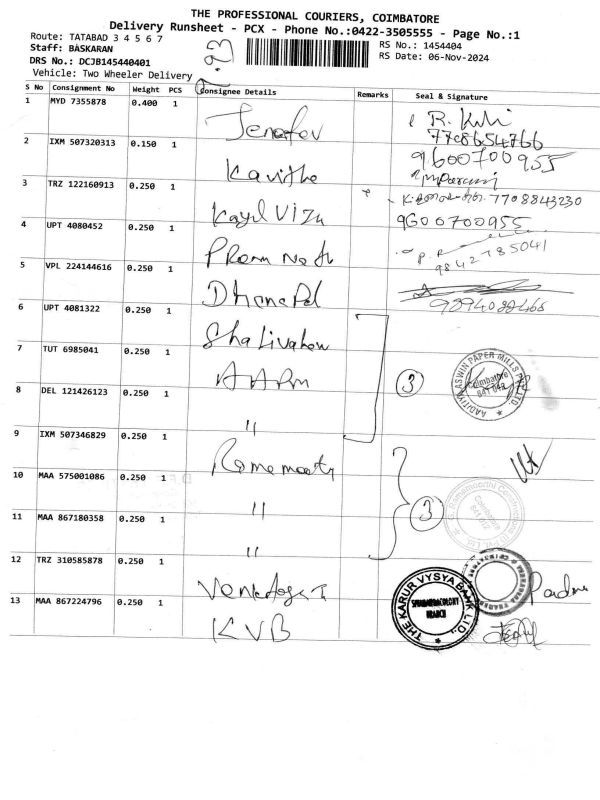 THE PROFESSIONAL COURIERS, COIMBATORE
Delivery Runsheet - PCX - Phone No.:0422-3505555 - Page No.:1
Route: TATABAD 3 4 5 6 7
Staff: BASKARAN
DRS No.: DCJB145440401
Vehicle: Two Wheeler Delivery
RS No.: 1454404
RS Date: 06-Nov-2024
S No Consignment No Weight PCS Consignee Details Remarks Seal & Signature
1 MYD 7355878 0.400 1 R. K
7708654766
2 IXM 507320313 0.150 1 Kavitha 9600700955
3 TRZ 122160913 0.250 1 Kayal Vizhi 7708843230
9600700955
4 UPT 4080452 0.250 1 P.
9842785041
5 VPL 224144616 0.250 1 DhanaPal
6 UPT 4081322 0.250 1 Shalivahan
7 TUT 6985041 0.250 1 AAPM 3 AADITYA ASWIN PAPER MILLS P LTD. Coimbatore
8 DEL 121426123 0.250 1 "
9 IXM 507346829 0.250 1
10 MAA 575001086 0.250 1 "
11 MAA 867180358 0.250 1 " 3 Coimbatore
12 TRZ 310585878 0.250 1 Padma
13 MAA 867224796 0.250 1 KVB THE KARUR VYSYA BANK LTD. BRANCH